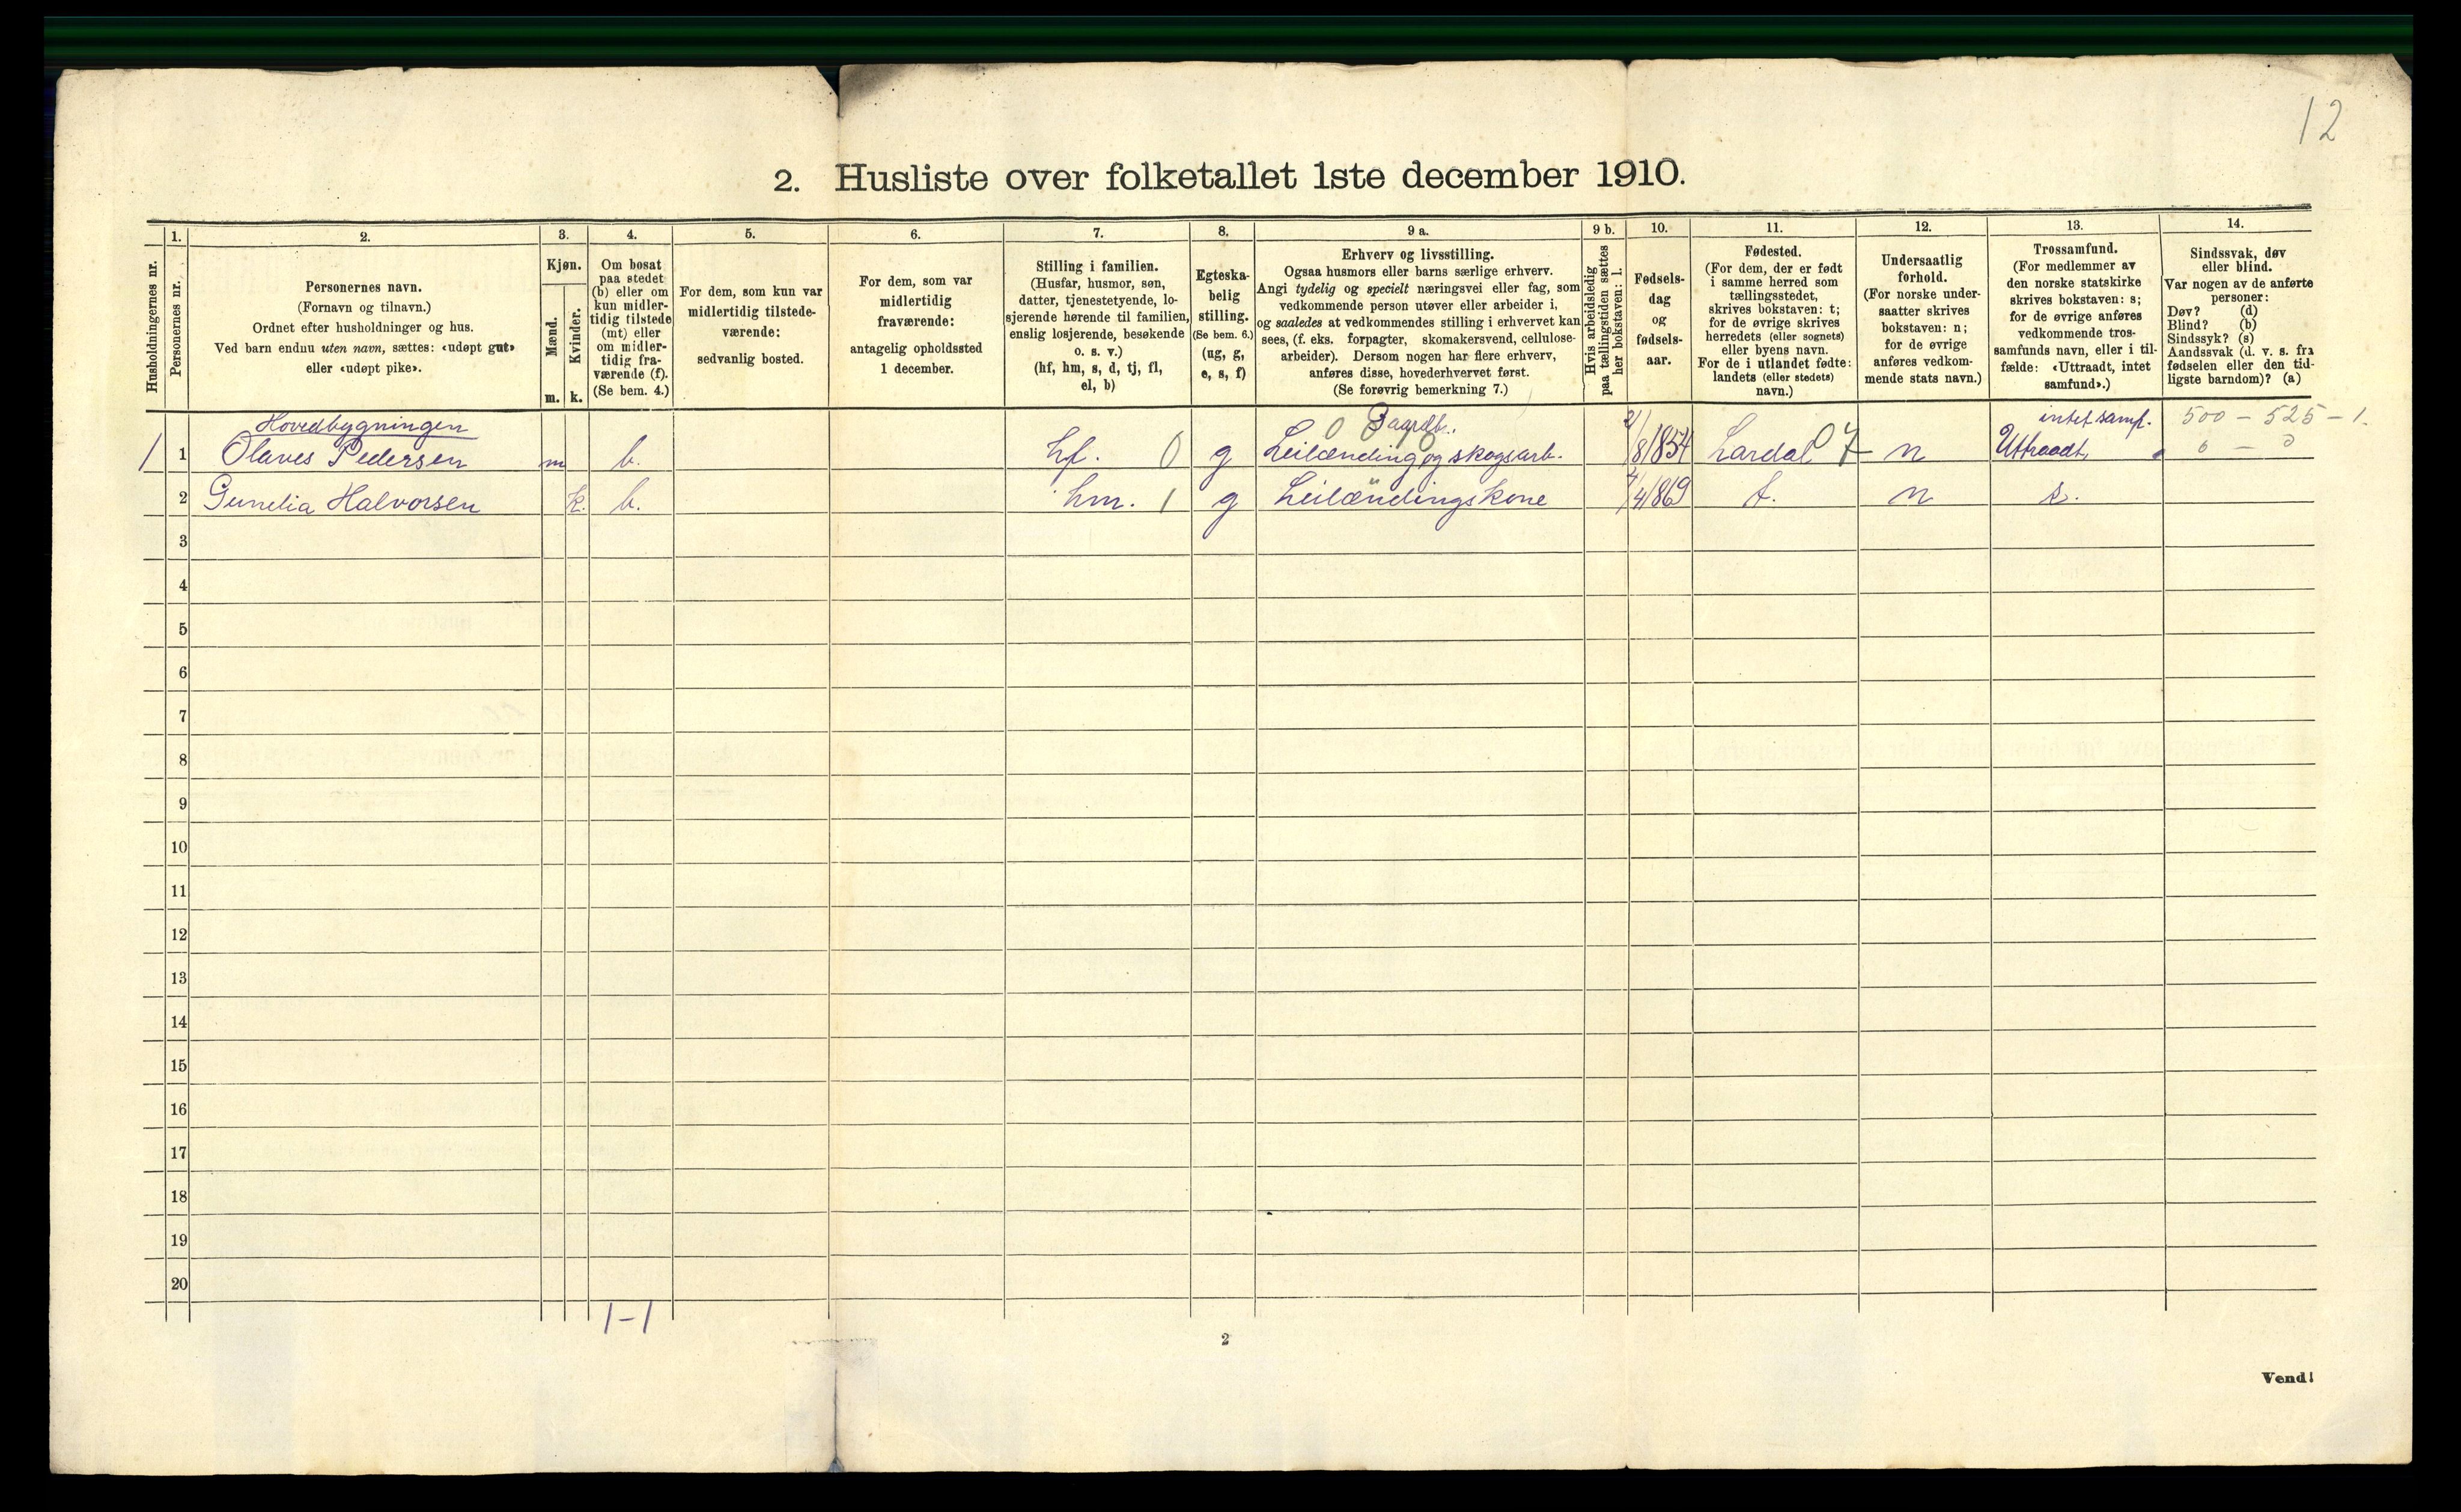 12
2. Husliste over folketallet 1ste december 1910.
Husholdningernes nr.
1.
Personernes nr.
2.
Personernes navn.
(Fornavn og tilnavn.)
Ordnet efter husholdninger og hus.
Ved barn endnu uten navn, sættes: «udøpt gut»
eller «udøpt pike».
3.
Kjøn.
Mænd.
Kvinder.
m. k.
4.
Om bosat
paa stedet
(b) eller om
kun midler-
tidig tilstede
(mt) eller
om midler-
tidig fra-
værende (f).
(Se bem. 4.)
5.
For dem, som kun var
midlertidig tilstede-
værende:
sedvanlig bosted.
6.
For dem, som var
midlertidig
fraværende:
antagelig opholdssted
1 december.
7.
Stilling i familien.
(Husfar, husmor, søn,
datter, tjenestetyende, lo-
sjerende hørende til familien,
enslig losjerende, besøkende
o. s. v.)
(hf, hm, s, d, tj, fl,
el, b)
8.
Egteska-
belig
stilling.
(Se bem. 6.)
(ug, g,
e, s, f)
9 a.
Erhverv og livsstilling.
Ogsaa husmors eller barns særlige erhverv.
Angi tydelig og specielt næringsvei eller fag, som
vedkommende person utøver eller arbeider i,
og saaledes at vedkommendes stilling i erhvervet kan
sees, (f. eks. forpagter, skomakersvend, cellulose-
arbeider). Dersom nogen har flere erhverv,
anføres disse, hovederhvervet først.
(Se forøvrig bemerkning 7.)
9 b.
Hvis arbeidsledig
paa tællingstiden sættes
her bokstaven: l.
10.
Fødsels-
dag
og
fødsels-
aar.
11.
Fødested.
(For dem, der er født
i samme herred som
tællingsstedet,
skrives bokstaven: t;
for de øvrige skrives
herredets (eller sognets)
eller byens navn.
For de i utlandet fødte:
landets (eller stedets)
navn.)
12.
Undersaatlig
forhold.
(For norske under-
saatter skrives
bokstaven: n;
for de øvrige
anføres vedkom-
mende stats navn.)
13.
Trossamfund.
(For medlemmer av
den norske statskirke
skrives bokstaven: s;
for de øvrige anføres
vedkommende tros-
samfunds navn, eller i til-
fælde: «Uttraadt, intet
samfund».)
14.
Sindssvak, døv
eller blind.
Var nogen av de anførte
personer:
Døv? (d)
Blind? (b)
Sindssyk? (s)
Aandssvak (d. v. s. fra
fødselen eller den tid-
ligste barndom)? (a)
Hovedbygningen intet samf. 500 - 525 - 1.
1 1 Olaves Pedersen m b. hf. 0 g Leilænding og skogsarb. /8 1854 Lardal 07 n Uttraadt, 0 - 0
2 Gunelia Halvorsen k. b. hm. 1 g Leilændingskone /4 1869 t. n s.
3
4
5
6
7
8
9
10
11
12
13
14
15
16
17
18
19
20
1-1
2
Vend!